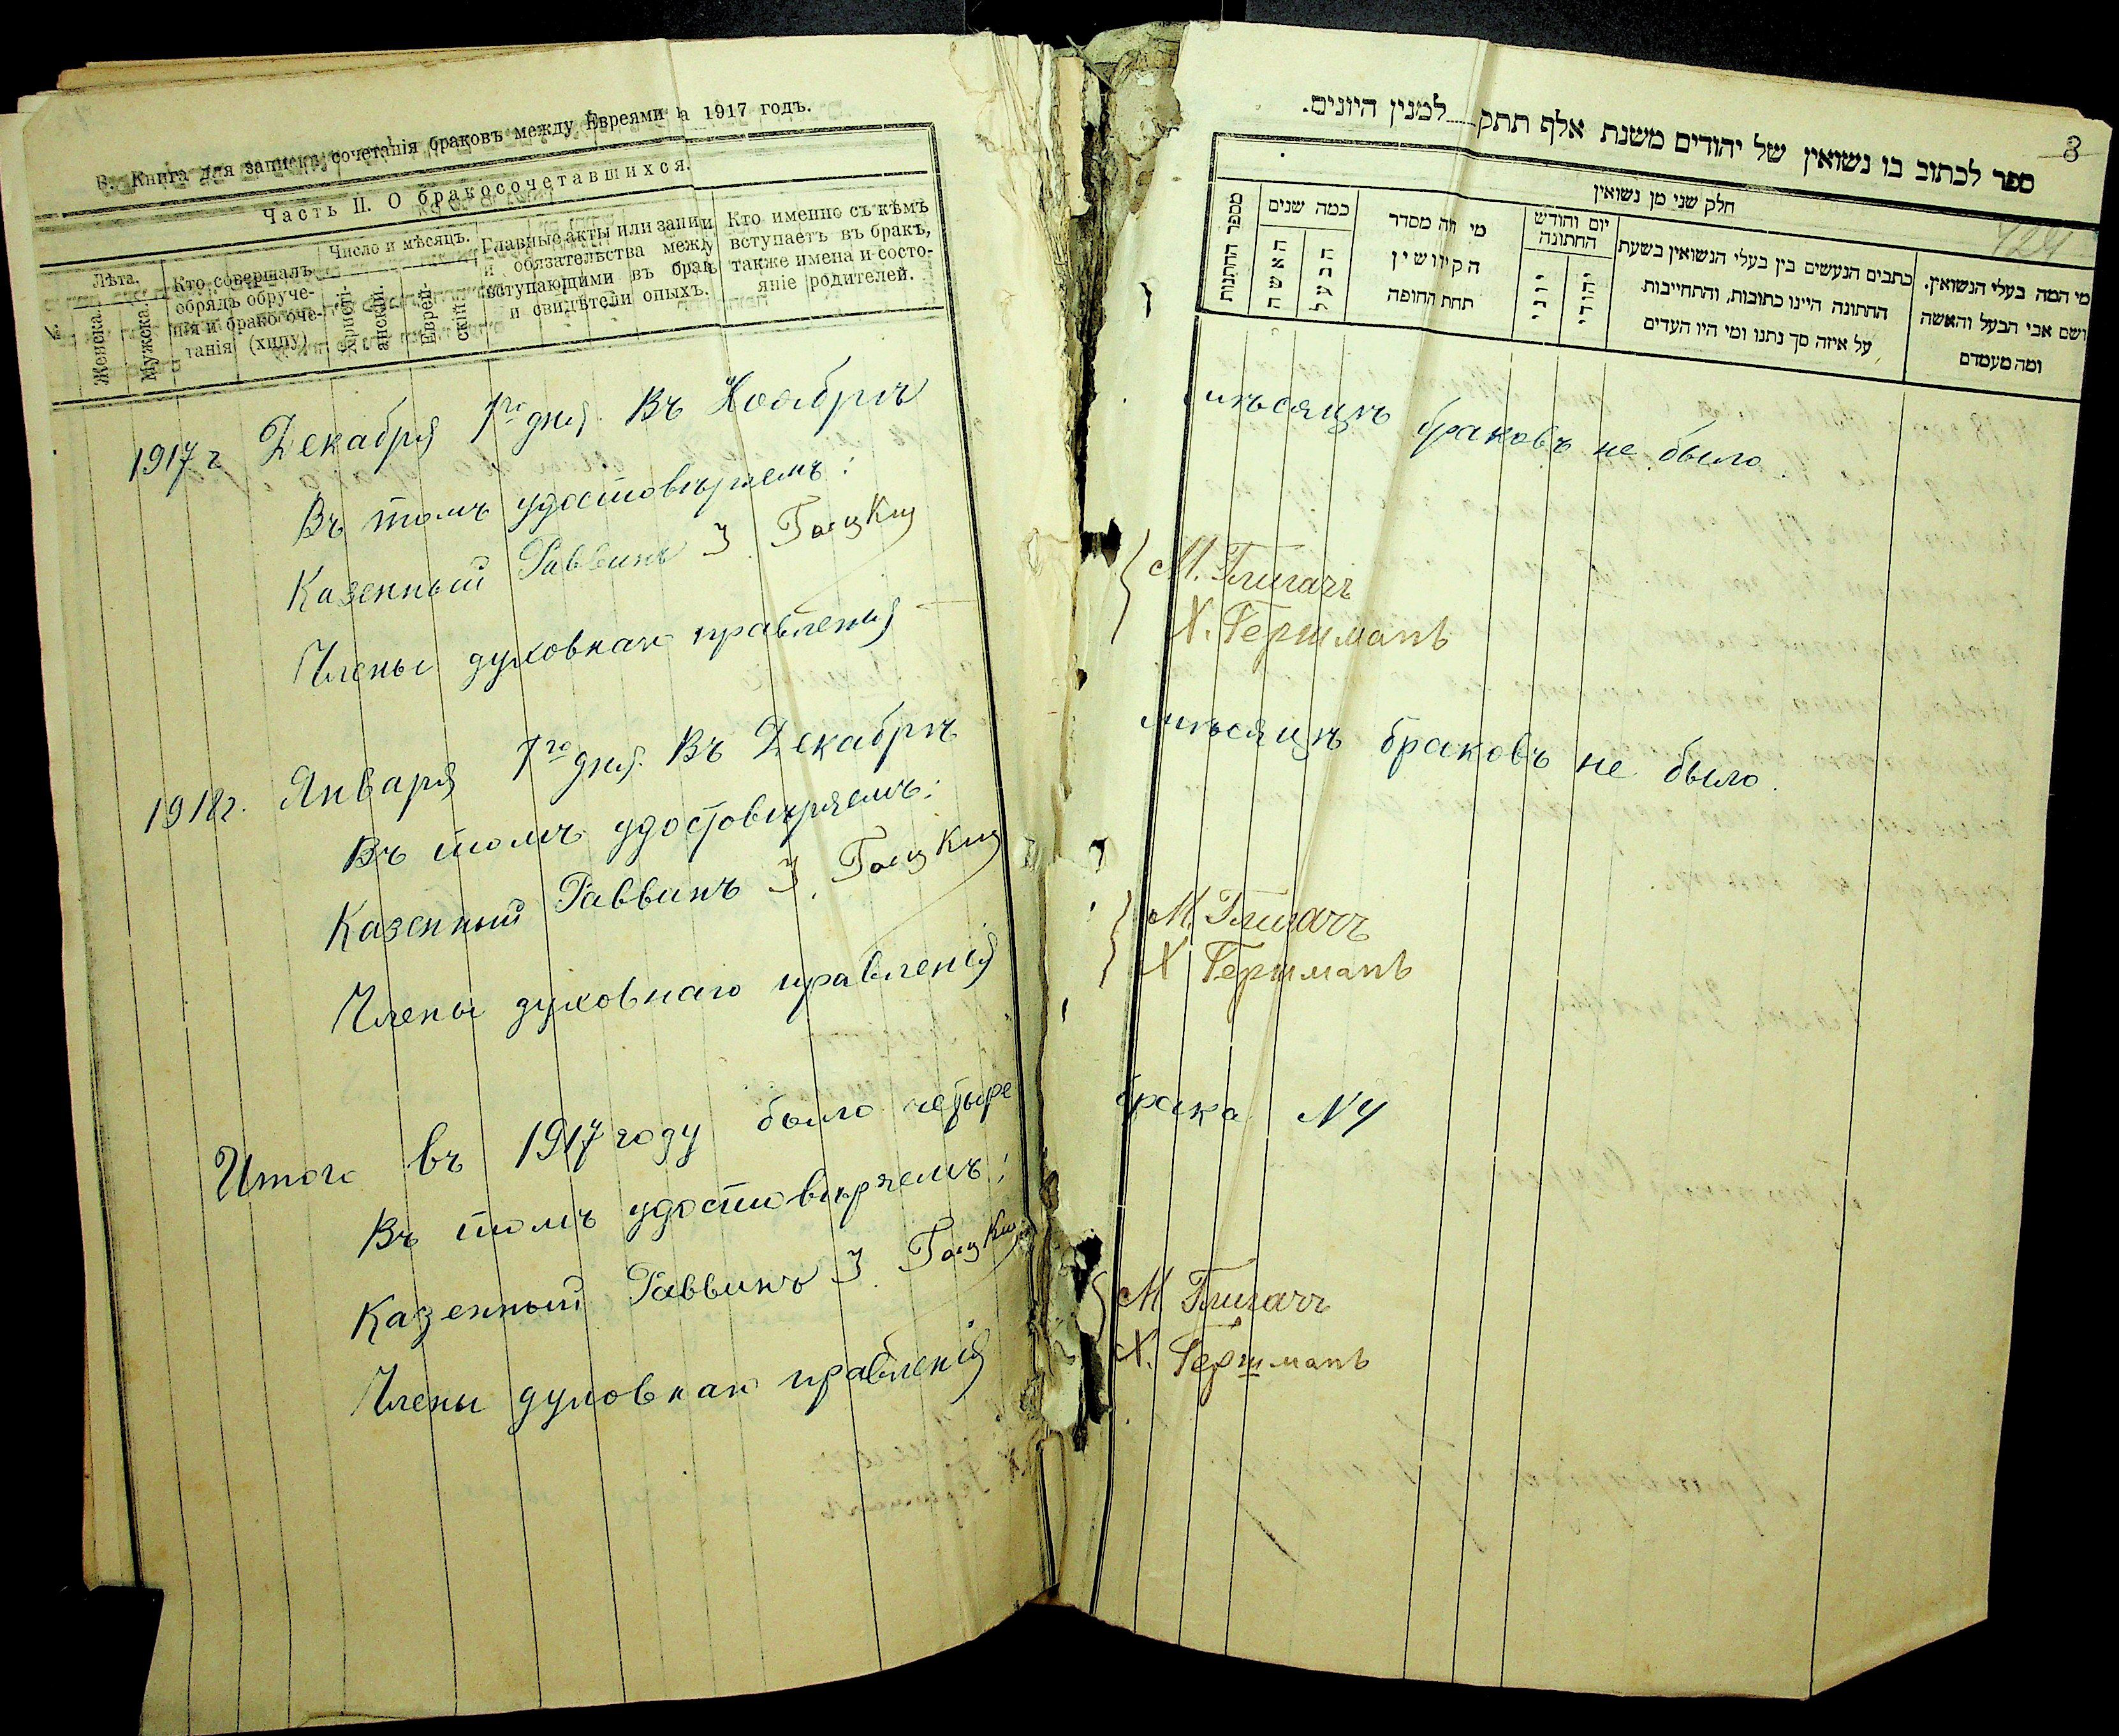 Книга для записки сочетанія браковъ между Евреями а 1917 годъ.
Часть II. О бракосочетавшихся.
№
Лѣта.
Женска.
Мужска.
Кто совершалъ
обрядъ обруче-
нія и бракосоче-
танія (хипу)
Число и мѣсяцъ.
Христі-
анскій.
Еврей-
скій.
Главные акты или запи и
и обязательства между
вступающими въ бракъ
и свидѣтели оныхъ.
Кто именно съ кѣмъ
вступаетъ въ бракъ,
также имена и состо-
яніе родителей.
1917 г Декабря 1го дня. Въ Ноябрѣ
Въ томъ удостовѣряемъ:
Казенный Раввинъ З.
Члены духовнаго правленія
1918 г. Января 1го дня. Въ Декабрѣ
Въ томъ удостовѣряемъ:
Казенный Раввинъ З.
Члены духовнаго правленія
Итого въ 1917 году было четыре
Въ томъ удостовѣряемъ:
Казенный Раввинъ З.
Члены духовнаго правленія
8
ספר לכתוב בו נשואין של יהודים משנת אלף תתק למנין היונים.
חלק שני מן נשואין
מספר החתנות
כמה שנים
האשה
הבעל
מי הוה מסדר
הקידושין
תחת החופה
יום וחודש
החתונה
יוני
יהודי
כתבים הנעשים בין בעלי הנשואין בשעת
החתונה היינו כתובות, והתחייבות
על איזה סך נתנו ומי היו העדים
מי המה בעלי הנשואין.
ושם אבי הבעל והאשה
ומה מעמדם
мѣсяцѣ браковъ не было.
М.
Х. Гершманъ
мѣсяцѣ браковъ не было.
М.
Х Гершманъ
брака N 4
М
Х. Гершманъ